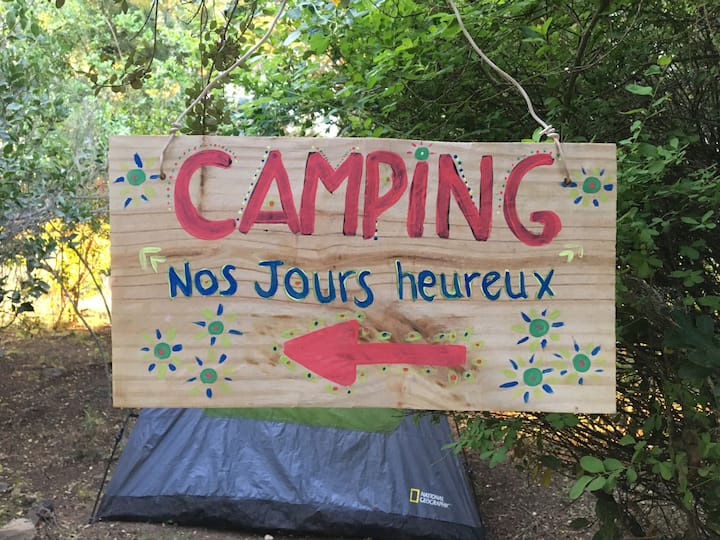 CAMPING
Nos Jours heureux
NATIONAL
GEOGRAPHIC